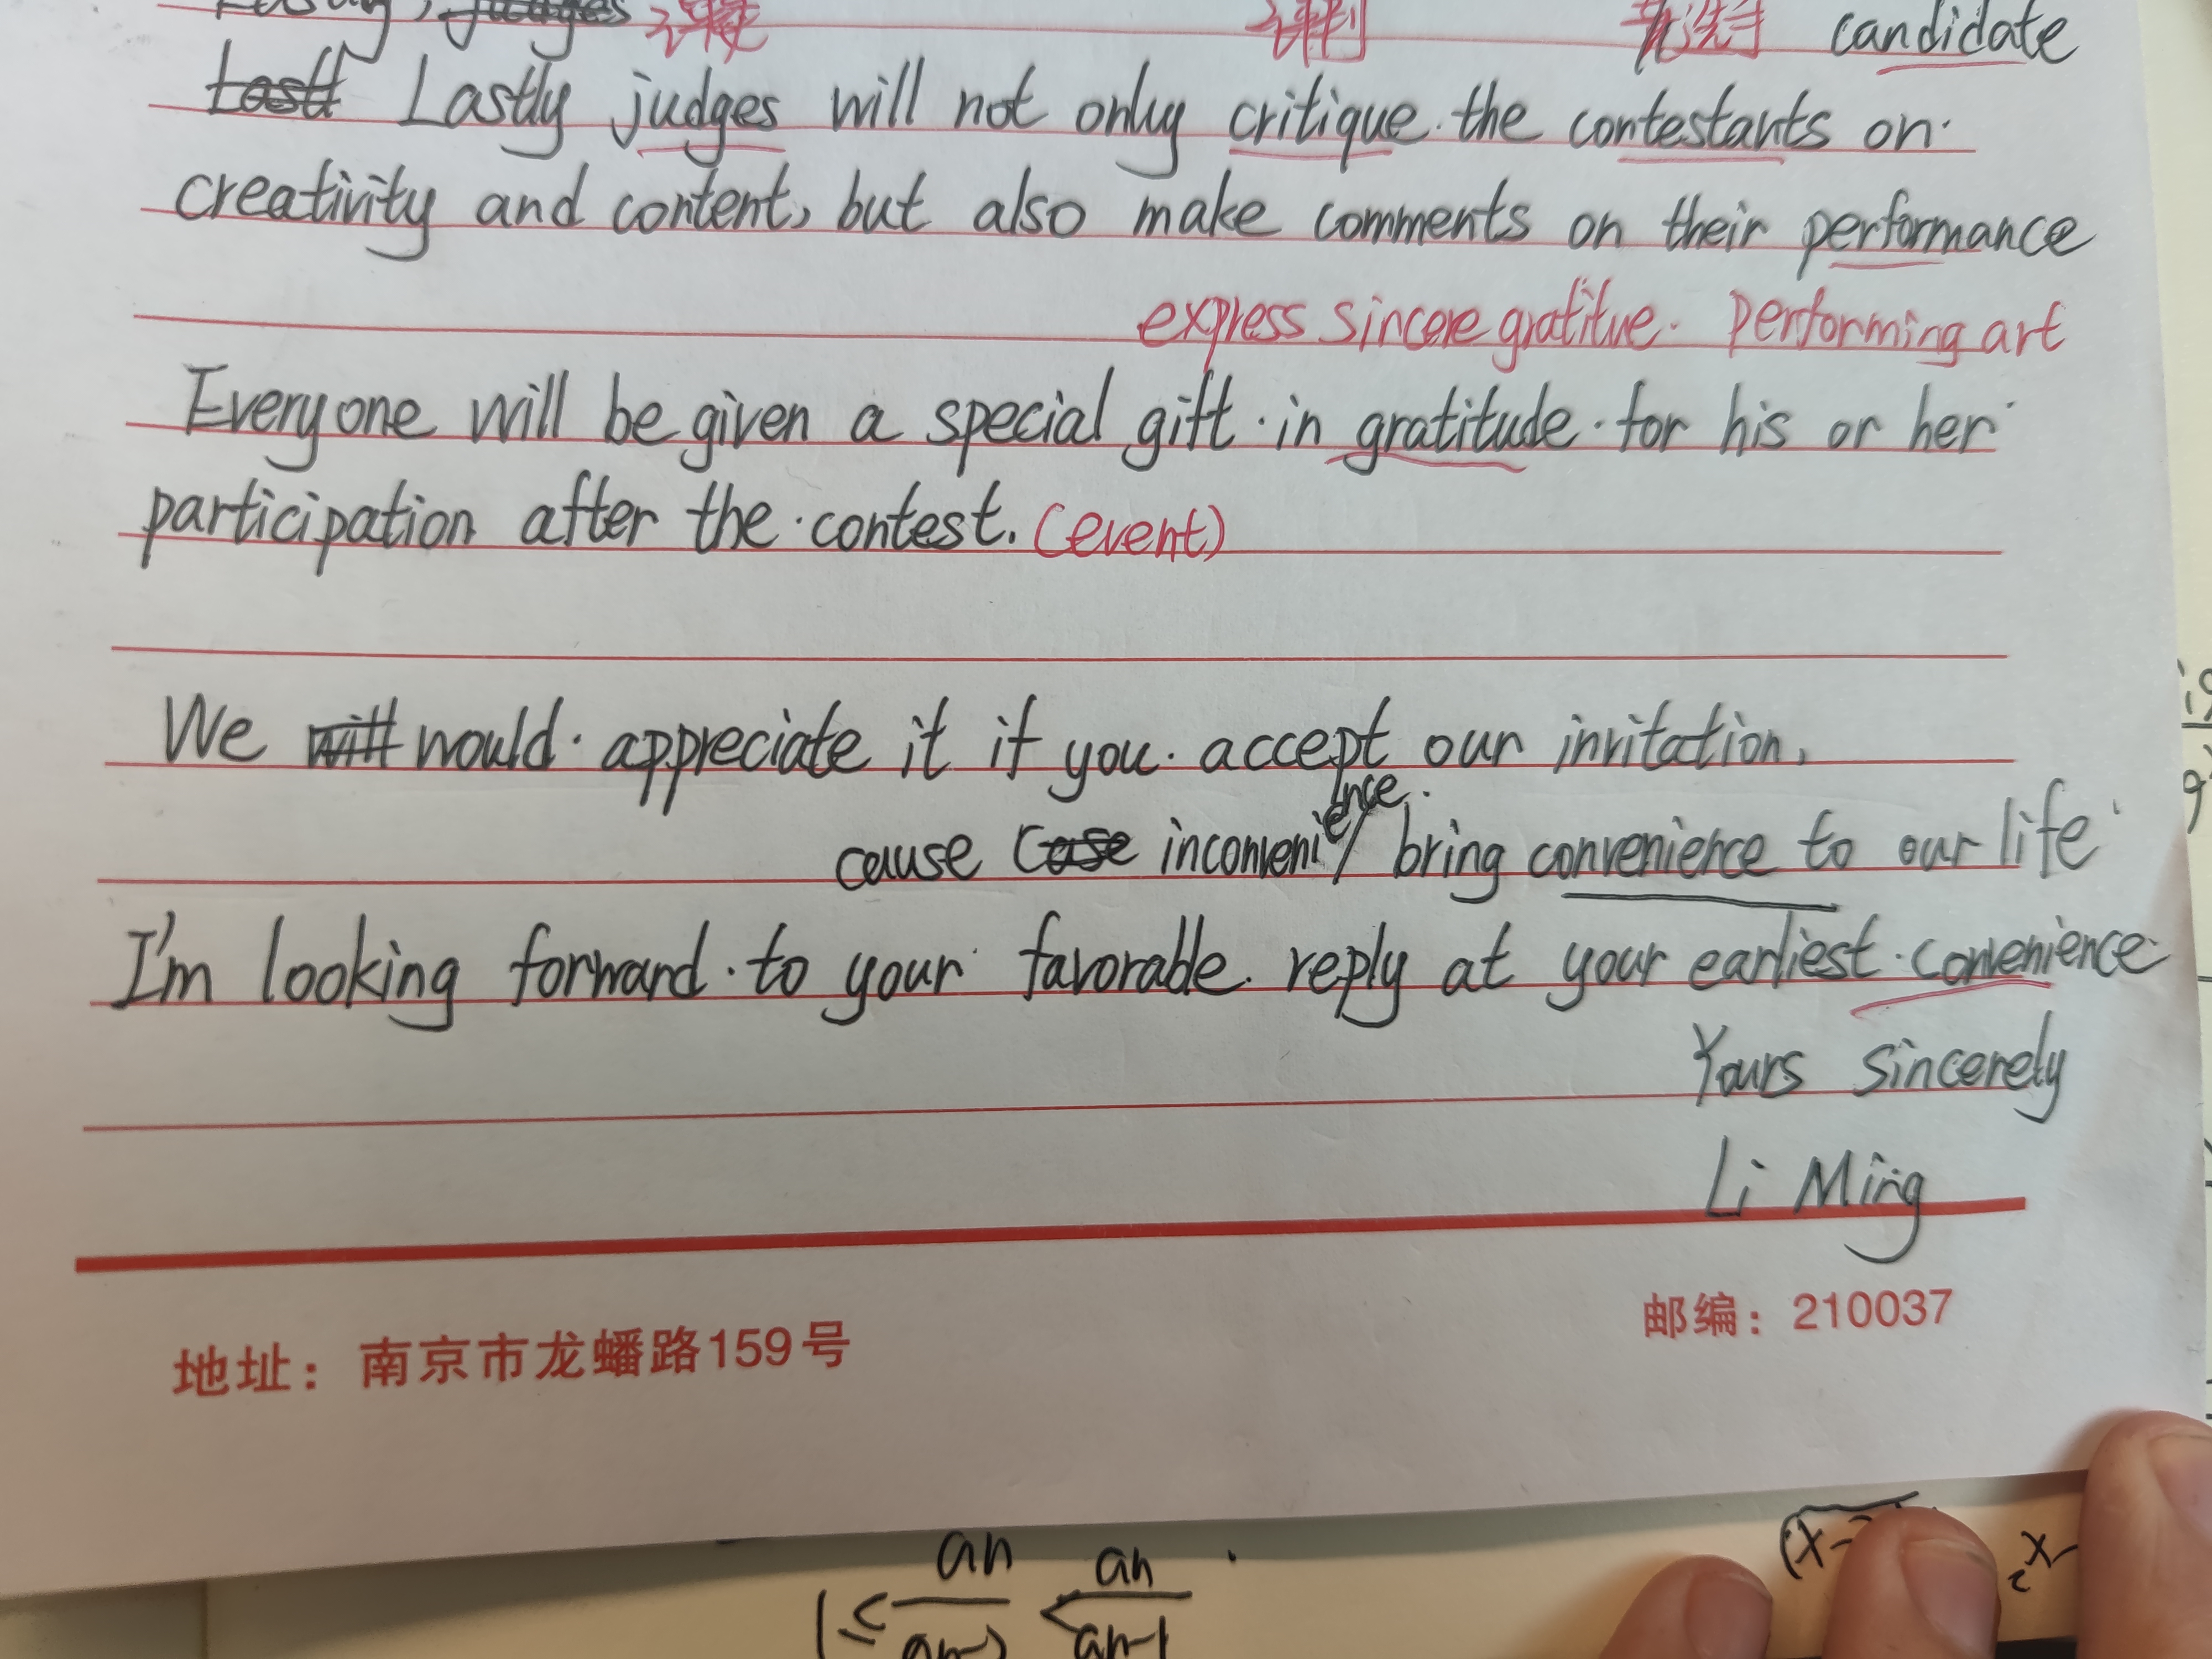 评委 评判 选手 candidate
Lastly judges will not only critique the contestants on
creativity and content, but also make comments on their performance
express sincere gratitue. Performing art
Everyone will be given a special gift in gratitude for his or her
participation after the contest. (event)
We will would appreciate it if you accept our invitation.
cause case inconvenience bring convenience to our life
I'm looking forward to your favorable reply at your earliest convenience
Yours sincerely
Li Ming
地址：南京市龙蟠路159号
邮编：210037
an an
1≤ <
an-1